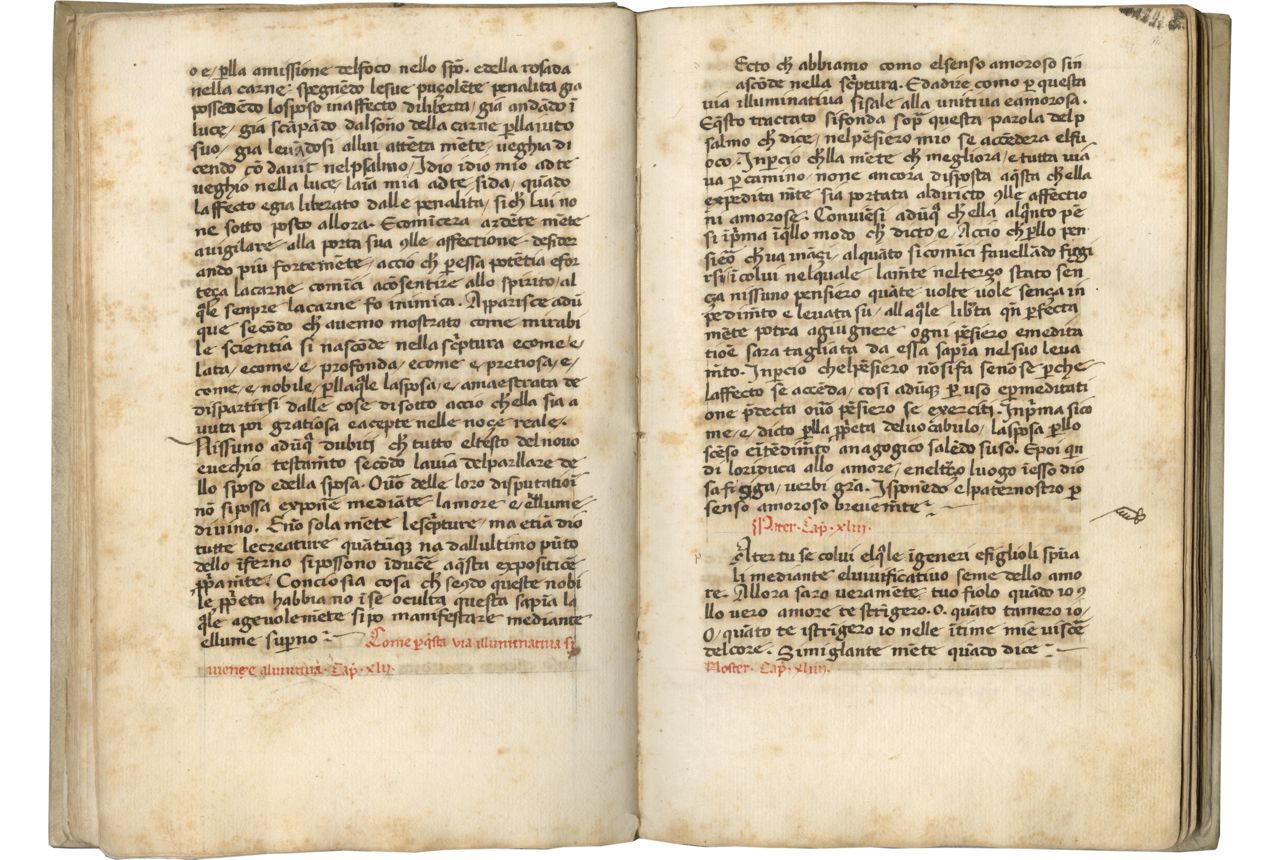 o e, p̄lla amissione delfōco nello spō. edella rosada
nella carne: spegnēdo lesue puçolēte penalita gia
possedēdo losposo inaffecto diliberta, gia andādo ī
luce, gia scāpādo dalsoño della carne p̄llaiuto
suo, gia leuādosi allui attēta mēte, ueghia di
cendo cō dauit nelpsalmo, Idio idio mio ad te
ueghio nella luce, laīa mia ad te, sida, quādo
laffecto egia liberato dalle penalita, sich̄ lui no
ne sotto posto allora. Ecomīcera ardēte mēte
auigilare alla porta sua 9lle affectione. desider
ando piu fortemēte, accio ch̄ p̄ essa potētia efor
teça lacarne comīci acosentire allo spirito, al
q̄le senpre lacarne fo inimica. Apparisce adū
que secōdo ch̄ auemo mostrato come mirabi
le scientia si nascōde nella sc̄ptura ecome, e,
lata, ecome, e, profonda, ecome e, pretiosa, e,
come, e, nobile, p̄llaq̄le lasposa, e, amaestrata de
dispartirsi dalle cose disotto accio ch̄ella sia a
uuta poi gratiosa eacepte nelle noçe reale.
Nissuno adūq̄ dubiti ch̄ tutto eltesto delnouo
euechio testam̄to secōdo lauia delparllare de
llo sposo edella sposa. Ou̅o delle loro disputatiōi
nō sipossa exponē mediāte lamore e, ellume
diuino. Enō sola mēte lesc̄pture, ma etiā dio
tutte lecreature quātūq̄ na dallultimo pūto
dello īferno sipossono īducē aq̄sta expositiōe
pp̄am̄te. Conciosia cosa ch̄ sendo queste nobi
le pp̄eta habbiano īse oculta questa sapīa la
q̄le ageuolemēte sipo manifestare mediante
ellume sup̄no. Come p̄ q̄sta uia illuminatiua si
uenge alunitiua. Cap̄. xlii.
Ecto ch̄ abbiamo como elsenso amoroso sin
ascōde nella sc̄ptura. Edadire como p̄ questa
uia illuminatiua sisale alla unitiua eamorosa.
Eq̄sto tractato sifonda sop̄ questa parola delp
salmo ch̄ dice, nelpēsiero mio se accēdera elfu
oco. Inp̄cio ch̄lla mēte ch̄ megliora, e tutta uia
ua p̄ camino, none ancora disposta aq̄sta ch̄ ella
expedita m̄te sia portata aldiricto 9lle affectio
ni amorose. Conuiēsi adūq̄ ch̄ ella alq̄nto pē
si īp̄ma īq̄llo modo ch̄ dicto e, Accio ch̄ p̄llo pen
siēo ch̄ ua īnāçi, alquāto si comīci fauellādo figgi
rsi, ī colui nelquale lam̄te nelterço stato sen
ça nissuno pensiero quāte uolte uole sença in
pedim̄to e leuata su, alla q̄le lib̄ta q̄n p̄fecta
mēte potra agiugnere ogni pēsiero emedita
tiōe sara tagliata da essa sapīa nelsuo leua
m̄to. Inp̄cio chelpēsiero nosifa senōse p̄che
laffecto se accēda, cosi adūq̄ p̄ uso ep̄ meditati
one p̄decta ou̅o pēsiero se exerciti. Inp̄ma sico
me, e, dicto p̄lla pp̄eta deluocabulo, lasposa p̄llo
scēso eītēdim̄to anagogico salēdo suso. Epoi qn̄
di loriduca allo amore, eneltērço luogo īesso dio
sa figiga, uerbi grā. Isponēdo elpaternostro p̄
senso amoroso breuem̄te.
Pater. Cap̄. xliii.
Ater tu se colui elq̄le īgeneri efiglioli sp̄ua
li mediante eluiuificatiuo seme dello amo
re. Allora saro ueramēte tuo fiolo quādo io 9
llo uero amore te strīgero. O. quāto tamero io,
O, quāto te istrīgero io nelle ītime mie uiscē
delcore. Simiglante mēte quādo dice.
Noster. Cap̄. xliiii.